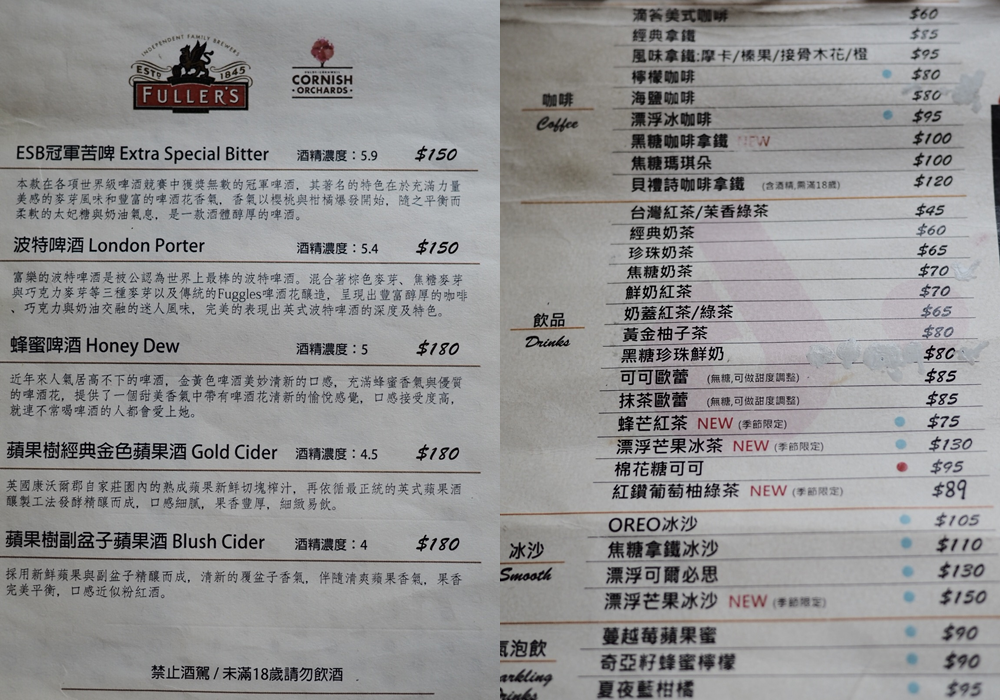 INDEPENDENT FAMILY BREWERS
ESTD 1845
FULLER'S
CORNISH
ORCHARDS
ESB冠軍苦啤 Extra Special Bitter 酒精濃度：5.9 $150
本款在各項世界級啤酒競賽中獲獎無數的冠軍啤酒，其著名的特色在於充滿力量
美感的麥芽風味和豐富的啤酒花香氣，香氣以櫻桃與柑橘爆發開始，隨之平衡而
柔軟的太妃糖與奶油氣息，是一款酒體醇厚的啤酒。
波特啤酒 London Porter 酒精濃度：5.4 $150
富樂的波特啤酒是被公認為世界上最棒的波特啤酒。混合著棕色麥芽、焦糖麥芽
與巧克力麥芽等三種麥芽以及傳統的Fuggles啤酒花釀造，呈現出豐富醇厚的咖啡
、巧克力與奶油交融的迷人風味，完美的表現出英式波特啤酒的深度及特色。
蜂蜜啤酒 Honey Dew 酒精濃度：5 $180
近年來人氣居高不下的啤酒，金黃色啤酒美妙清新的口感，充滿蜂蜜香氣與優質
的啤酒花，提供了一個甜美香氣中帶有啤酒花清新的愉悅感覺，口感接受度高，
就連不常喝啤酒的人都會愛上她。
蘋果樹經典金色蘋果酒 Gold Cider 酒精濃度：4.5 $180
英國康沃爾郡自家莊園內的熟成蘋果新鮮切塊榨汁，再依循最正統的英式蘋果酒
釀製工法發酵精釀而成，口感細膩，果香豐厚，細緻易飲。
蘋果樹副盆子蘋果酒 Blush Cider 酒精濃度：4 $180
採用新鮮蘋果與副盆子精釀而成，清新的覆盆子香氣，伴隨清爽蘋果香氣，果香
完美平衡，口感近似粉紅酒。
禁止酒駕 / 未滿18歲請勿飲酒
咖啡
Coffee
滴答美式咖啡 $60
經典拿鐵 $85
風味拿鐵:摩卡/榛果/接骨木花/橙 $95
檸檬咖啡 $80
海鹽咖啡 $80
漂浮冰咖啡 $95
黑糖咖啡拿鐵 NEW $100
焦糖瑪琪朵 $100
貝禮詩咖啡拿鐵 (含酒精,需滿18歲) $120
飲品
Drinks
台灣紅茶/茉香綠茶 $45
經典奶茶 $60
珍珠奶茶 $65
焦糖奶茶 $70
鮮奶紅茶 $70
奶蓋紅茶/綠茶 $65
黃金柚子茶 $80
黑糖珍珠鮮奶 $80
可可歐蕾 (無糖,可做甜度調整) $85
抹茶歐蕾 (無糖,可做甜度調整) $85
蜂芒紅茶 NEW (季節限定) $75
漂浮芒果冰茶 NEW (季節限定) $130
棉花糖可可 $95
紅鑽葡萄柚綠茶 NEW (季節限定) $89
冰沙
Smooth
OREO冰沙 $105
焦糖拿鐵冰沙 $110
漂浮可爾必思 $130
漂浮芒果冰沙 NEW (季節限定) $150
氣泡飲
arkling
rinks
蔓越莓蘋果蜜 $90
奇亞籽蜂蜜檸檬 $90
夏夜藍柑橘 $95